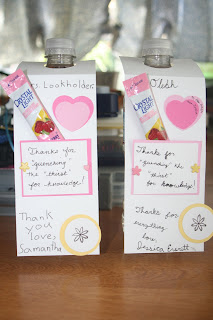 Mrs. Lookholder
CRYSTAL
LIGHT
Thanks for
"quenching"
the "thirst"
for knowledge!
Thank
you
love,
Samantha
CRYSTAL
LIGHT
Thanks for
"quenching" the
"thirst"
for knowledge!
Thanks for
everything
love,
Jessica Everitt